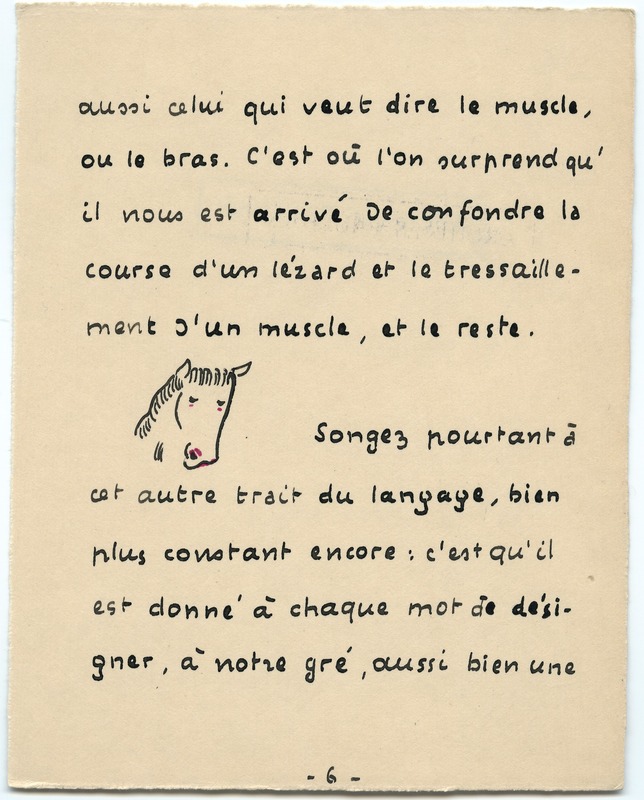 aussi celui qui veut dire le muscle,
ou le bras. C'est où l'on surprend qu'
il nous est arrivé de confondre la
course d'un lézard et le tressaille-
ment d'un muscle, et le reste.
Songez pourtant à
cet autre trait du langage, bien
plus constant encore : c'est qu'il
est donné à chaque mot de dési-
gner, à notre gré, aussi bien une
- 6 -